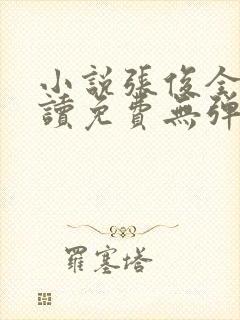 小說張俊全
讀免費無彈
羅塞塔